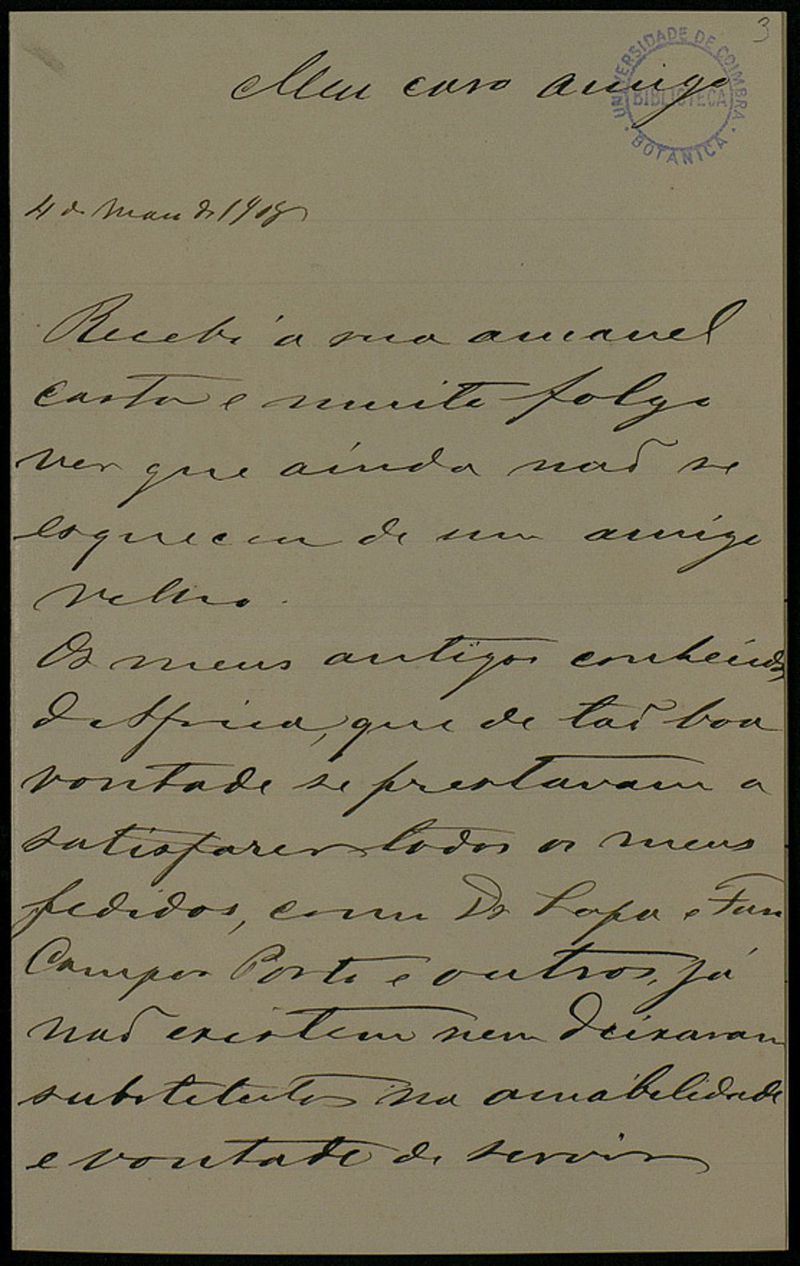 3
Meu caro amigo
UNIVERSIDADE DE COIMBRA
BIBLIOTECA
BOTANICA
4 de Maio de 1908
Recebi a sua amavel
carta e muito folgo
ver que ainda não se
esqueceu de um amigo
velho.
Os meus antigos conhecidos
d'Africa, que de tão boa
vontade se prestavam a
satisfazer todos os meus
pedidos, como Dr Lapa e
Campos Porto e outros, já
não existem nem deixaram
substitutos na amabilidade
e vontade de servir